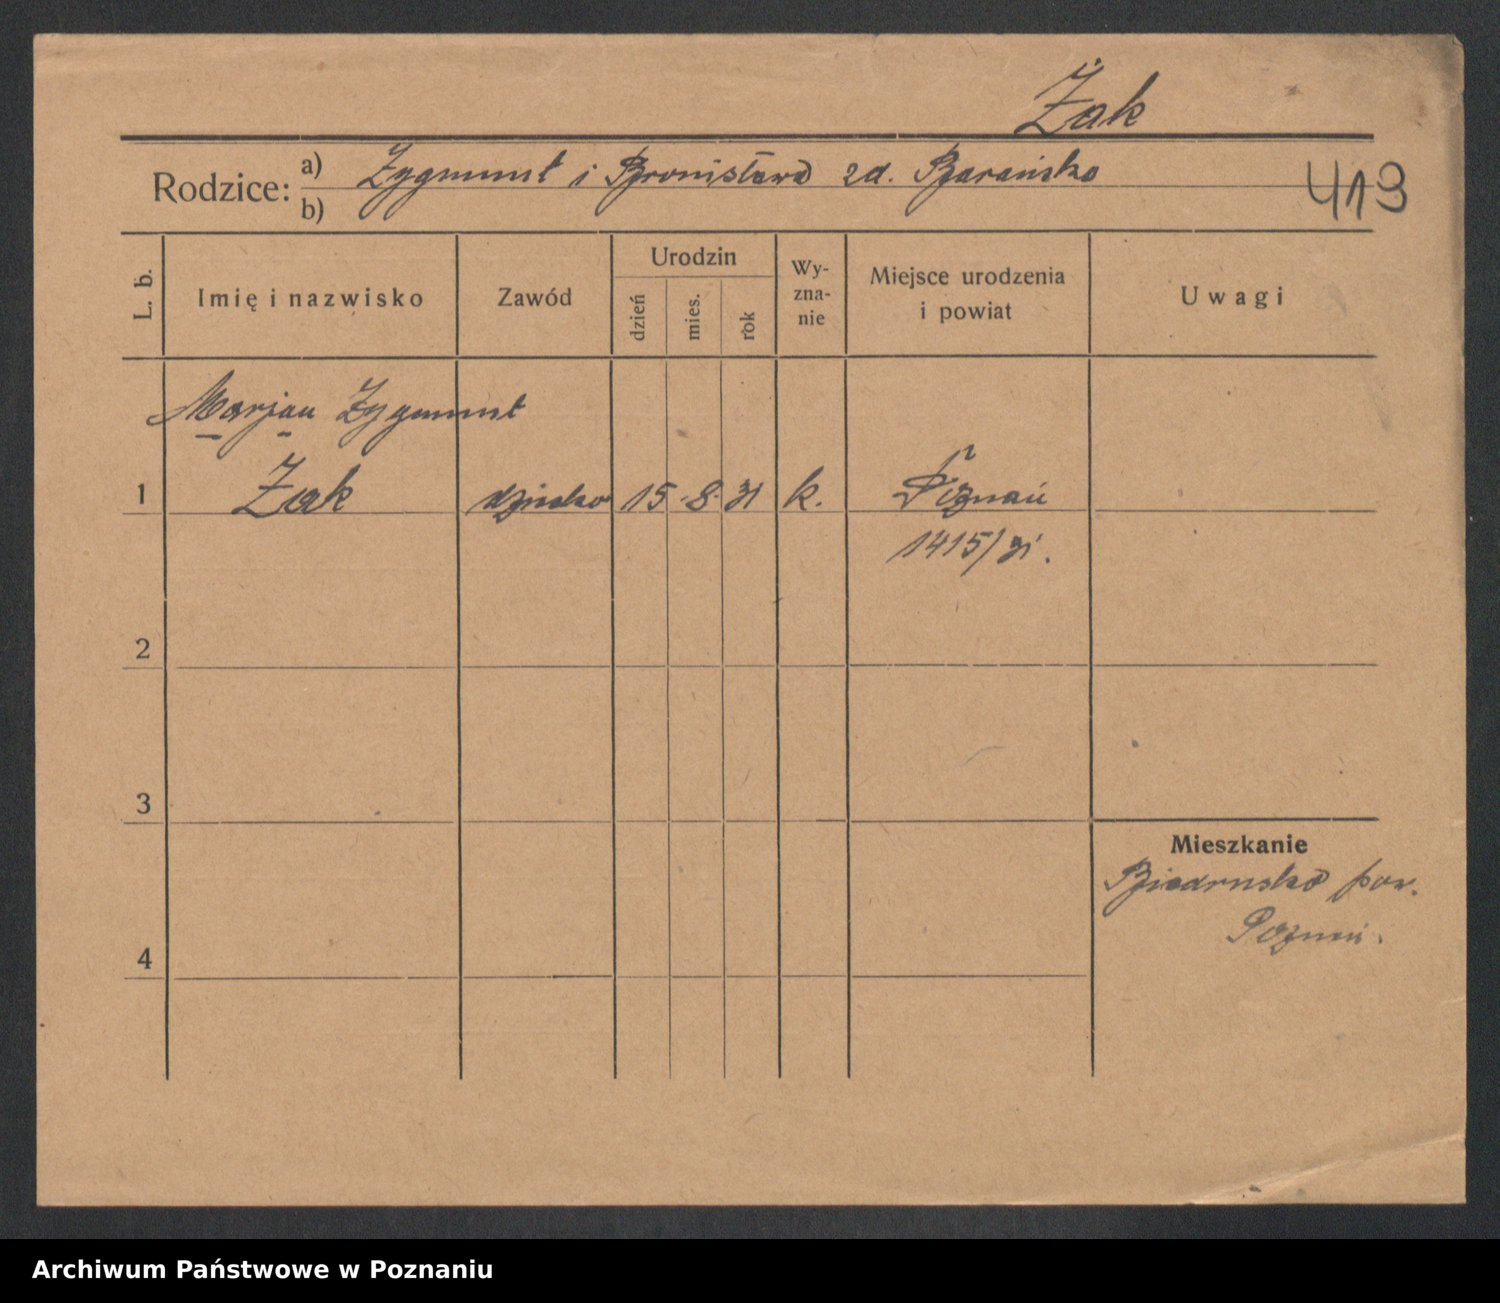 Żak
Rodzice: a) Zygmunt i Bronisława zd. Barańska
b)
413
L. b.
Imię i nazwisko
Zawód
Urodzin
dzień
mies.
rok
Wy-
zna-
nie
Miejsce urodzenia
i powiat
Uwagi
Marjan Zygmunt
1 Żak dziecko 15 8 31 k. Poznań
1415/31.
2
3
Mieszkanie
Biedrusko pow.
Poznań.
4
Archiwum Państwowe w Poznaniu